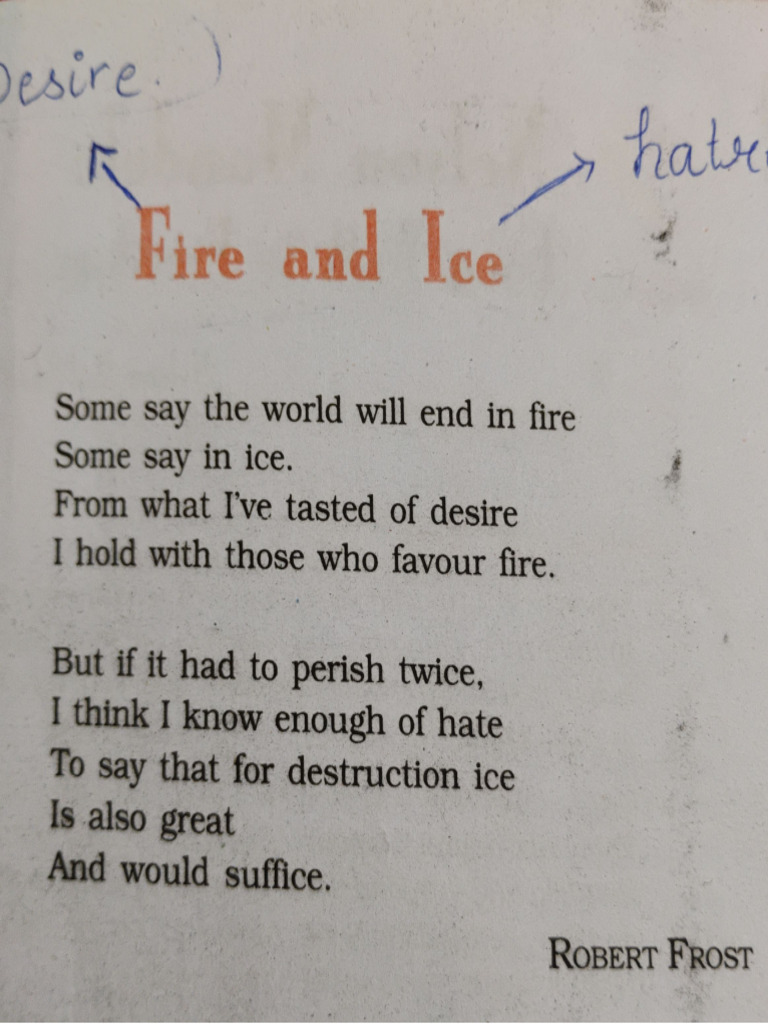 Desire. )
hatre
Fire and Ice
Some say the world will end in fire
Some say in ice.
From what I've tasted of desire
I hold with those who favour fire.
But if it had to perish twice,
I think I know enough of hate
To say that for destruction ice
Is also great
And would suffice.
ROBERT FROST